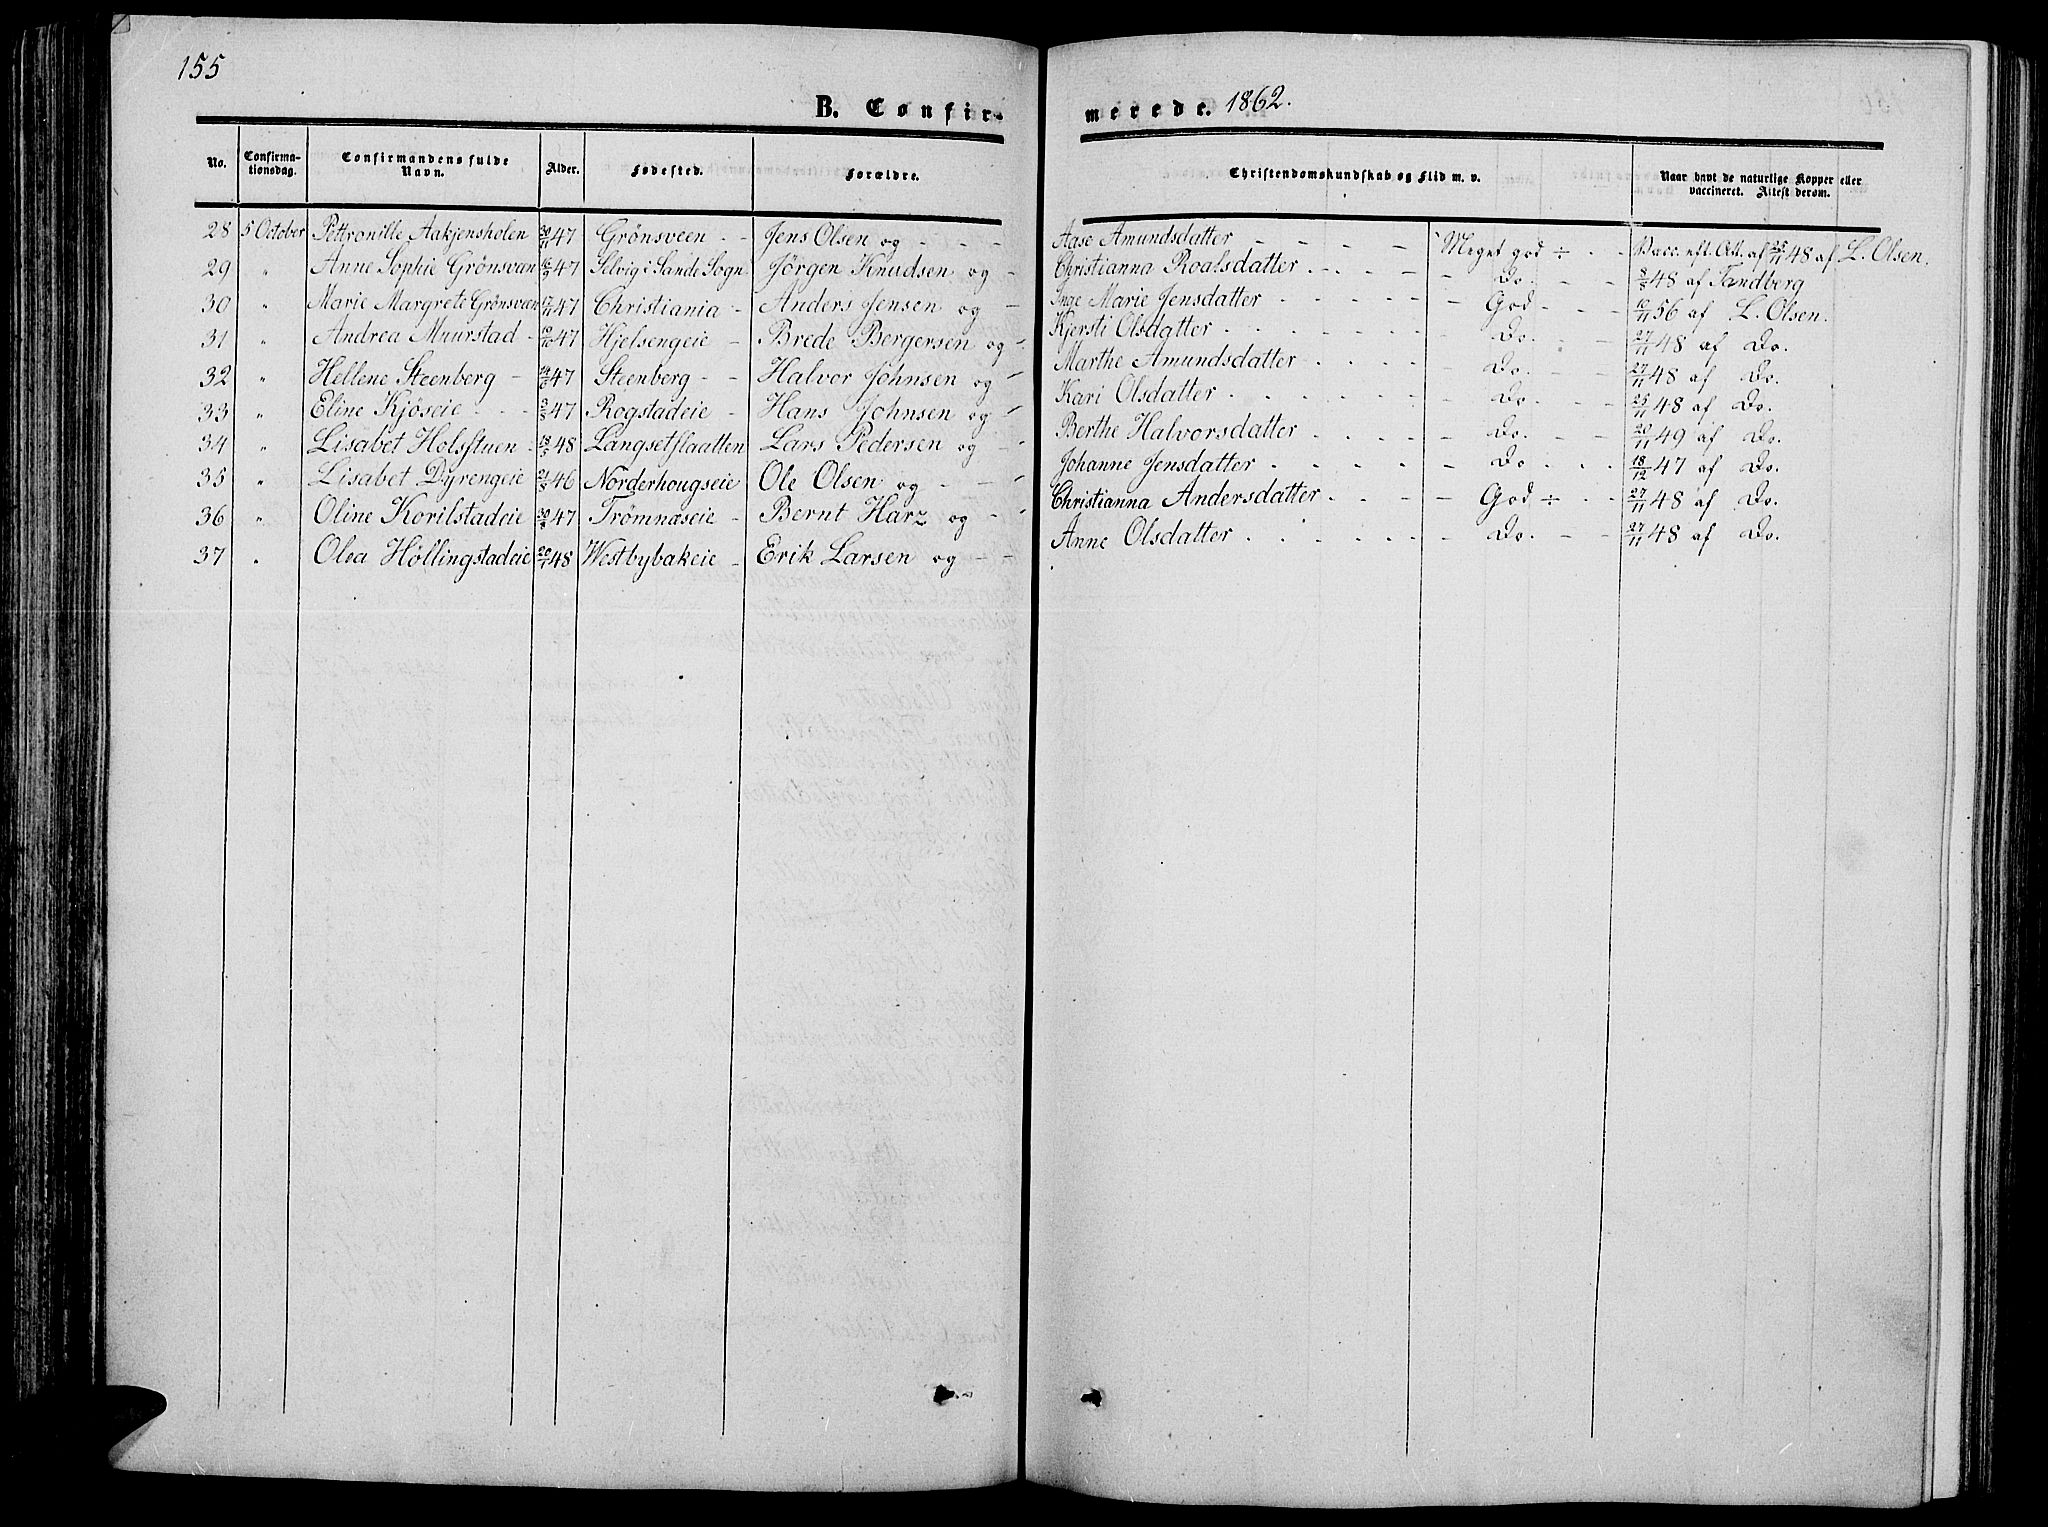 155
B. Confir-
merede. 1862.
No. Confirma-tionsdag. Confirmandens fulde Navn. Alder. Fødested. Forældre. Christendomskundskab og Flid m. v. Naar havt de naturlige Kopper eller vaccineret. Attest derom.
28 5 October Pettronille Aakjensholen 30/11 47 Grönsveen - - Jens Olsen og - - - Aase Amundsdatter - - - - - Meget god ÷ - - Vacc. eft. Att. af 25/11 48 af L. Olsen.
29 " Anne Sophie Grönsvan 47 Selvig i Sande Sogn Jörgen Knudsen og - Christianna Roalsdatter - - - - Do. - - 8/8 48 af Tandberg
30 " Marie Margrete Grönsveen 17/11 47 Christiania - Anders Jensen og - Inge Marie Jensdatter - - - - - God - - - 10/11 56 af L. Olsen.
31 " Andrea Muurstad - 10/10 47 Hjelsengeie - Brede Bergersen og - Kjersti Olsdatter - - - - - - Do. - - 27/11 48 af Do.
32 " Hellene Steenberg - 47 Steenberg - - Halvor Johnsen og - Marthe Amundsdatter - - - - - Do. - - 27/11 48 af Do.
33 " Eline Kjöseie - - - 3/8 47 Rogstadeie - Hans Johnsen og - Kari Olsdatter - - - - - - Do. - - 25/11 48 af Do.
34 " Lisabet Holsstuen - 48 Langsetslaatten Lars Pedersen og - Berthe Halvorsdatter - - - - - Do. - - 20/11 49 af Do.
35 " Lisabet Dyrengeie 46 Norderhougseie Ole Olsen og - - - Johanne Jensdatter - - - - - Do. - - - 18/12 47 af Do.
36 " Oline Korilstadeie 47 Trömnæseie - Bernt Harz og - - Christianna Andersdatter - - - - God ÷ - - 27/11 48 af Do.
37 " Olea Höllingstadeie 20/1 48 Westbybakeie - Erik Larsen og - - Anne Olsdatter - - - - - - Do. - - 27/11 48 af Do.